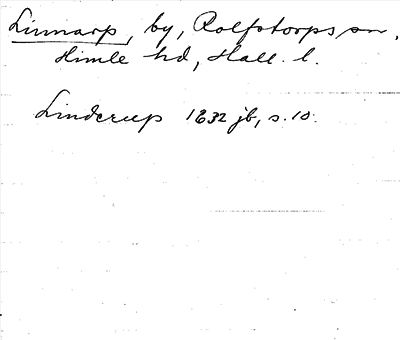 Linnarp, by, Rolfstorps sn,
Himle hd, Hall. l.
Linderup 1632 jb, s. 10.